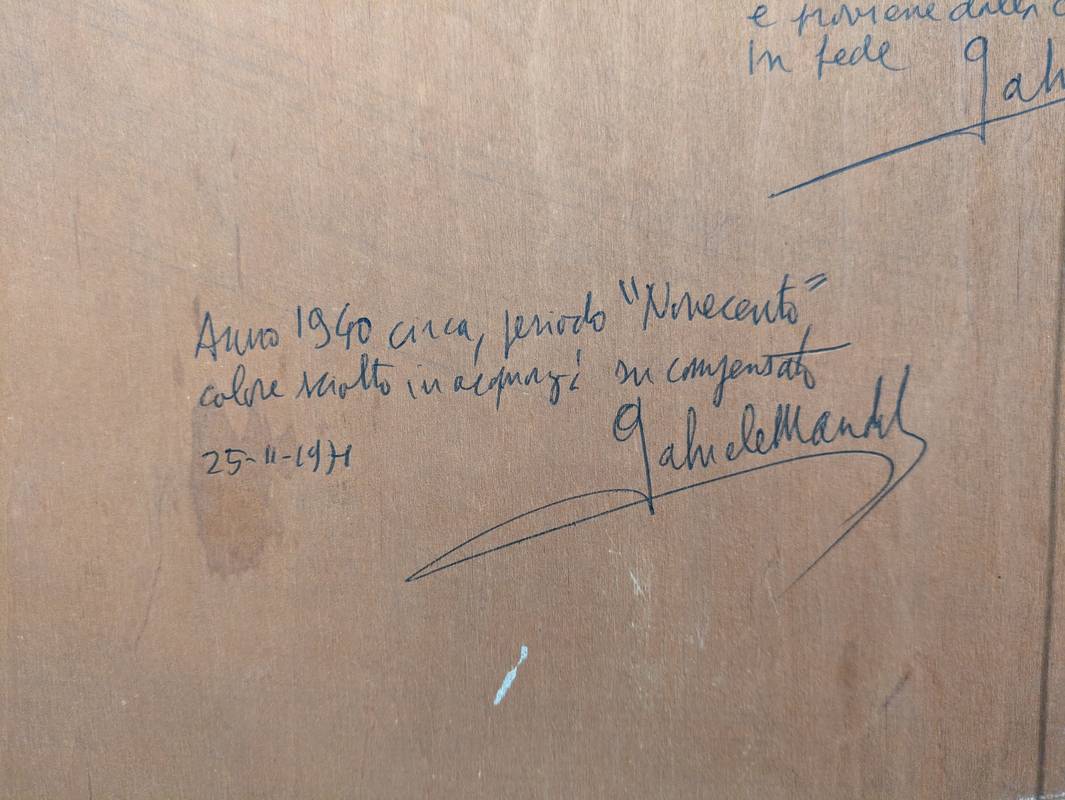 e proviene dalla
In fede Gab
Anno 1940 circa, periodo "Novecento",
colore sciolto in acquaragi su compensato
Gabriele Mandel
25-11-1971